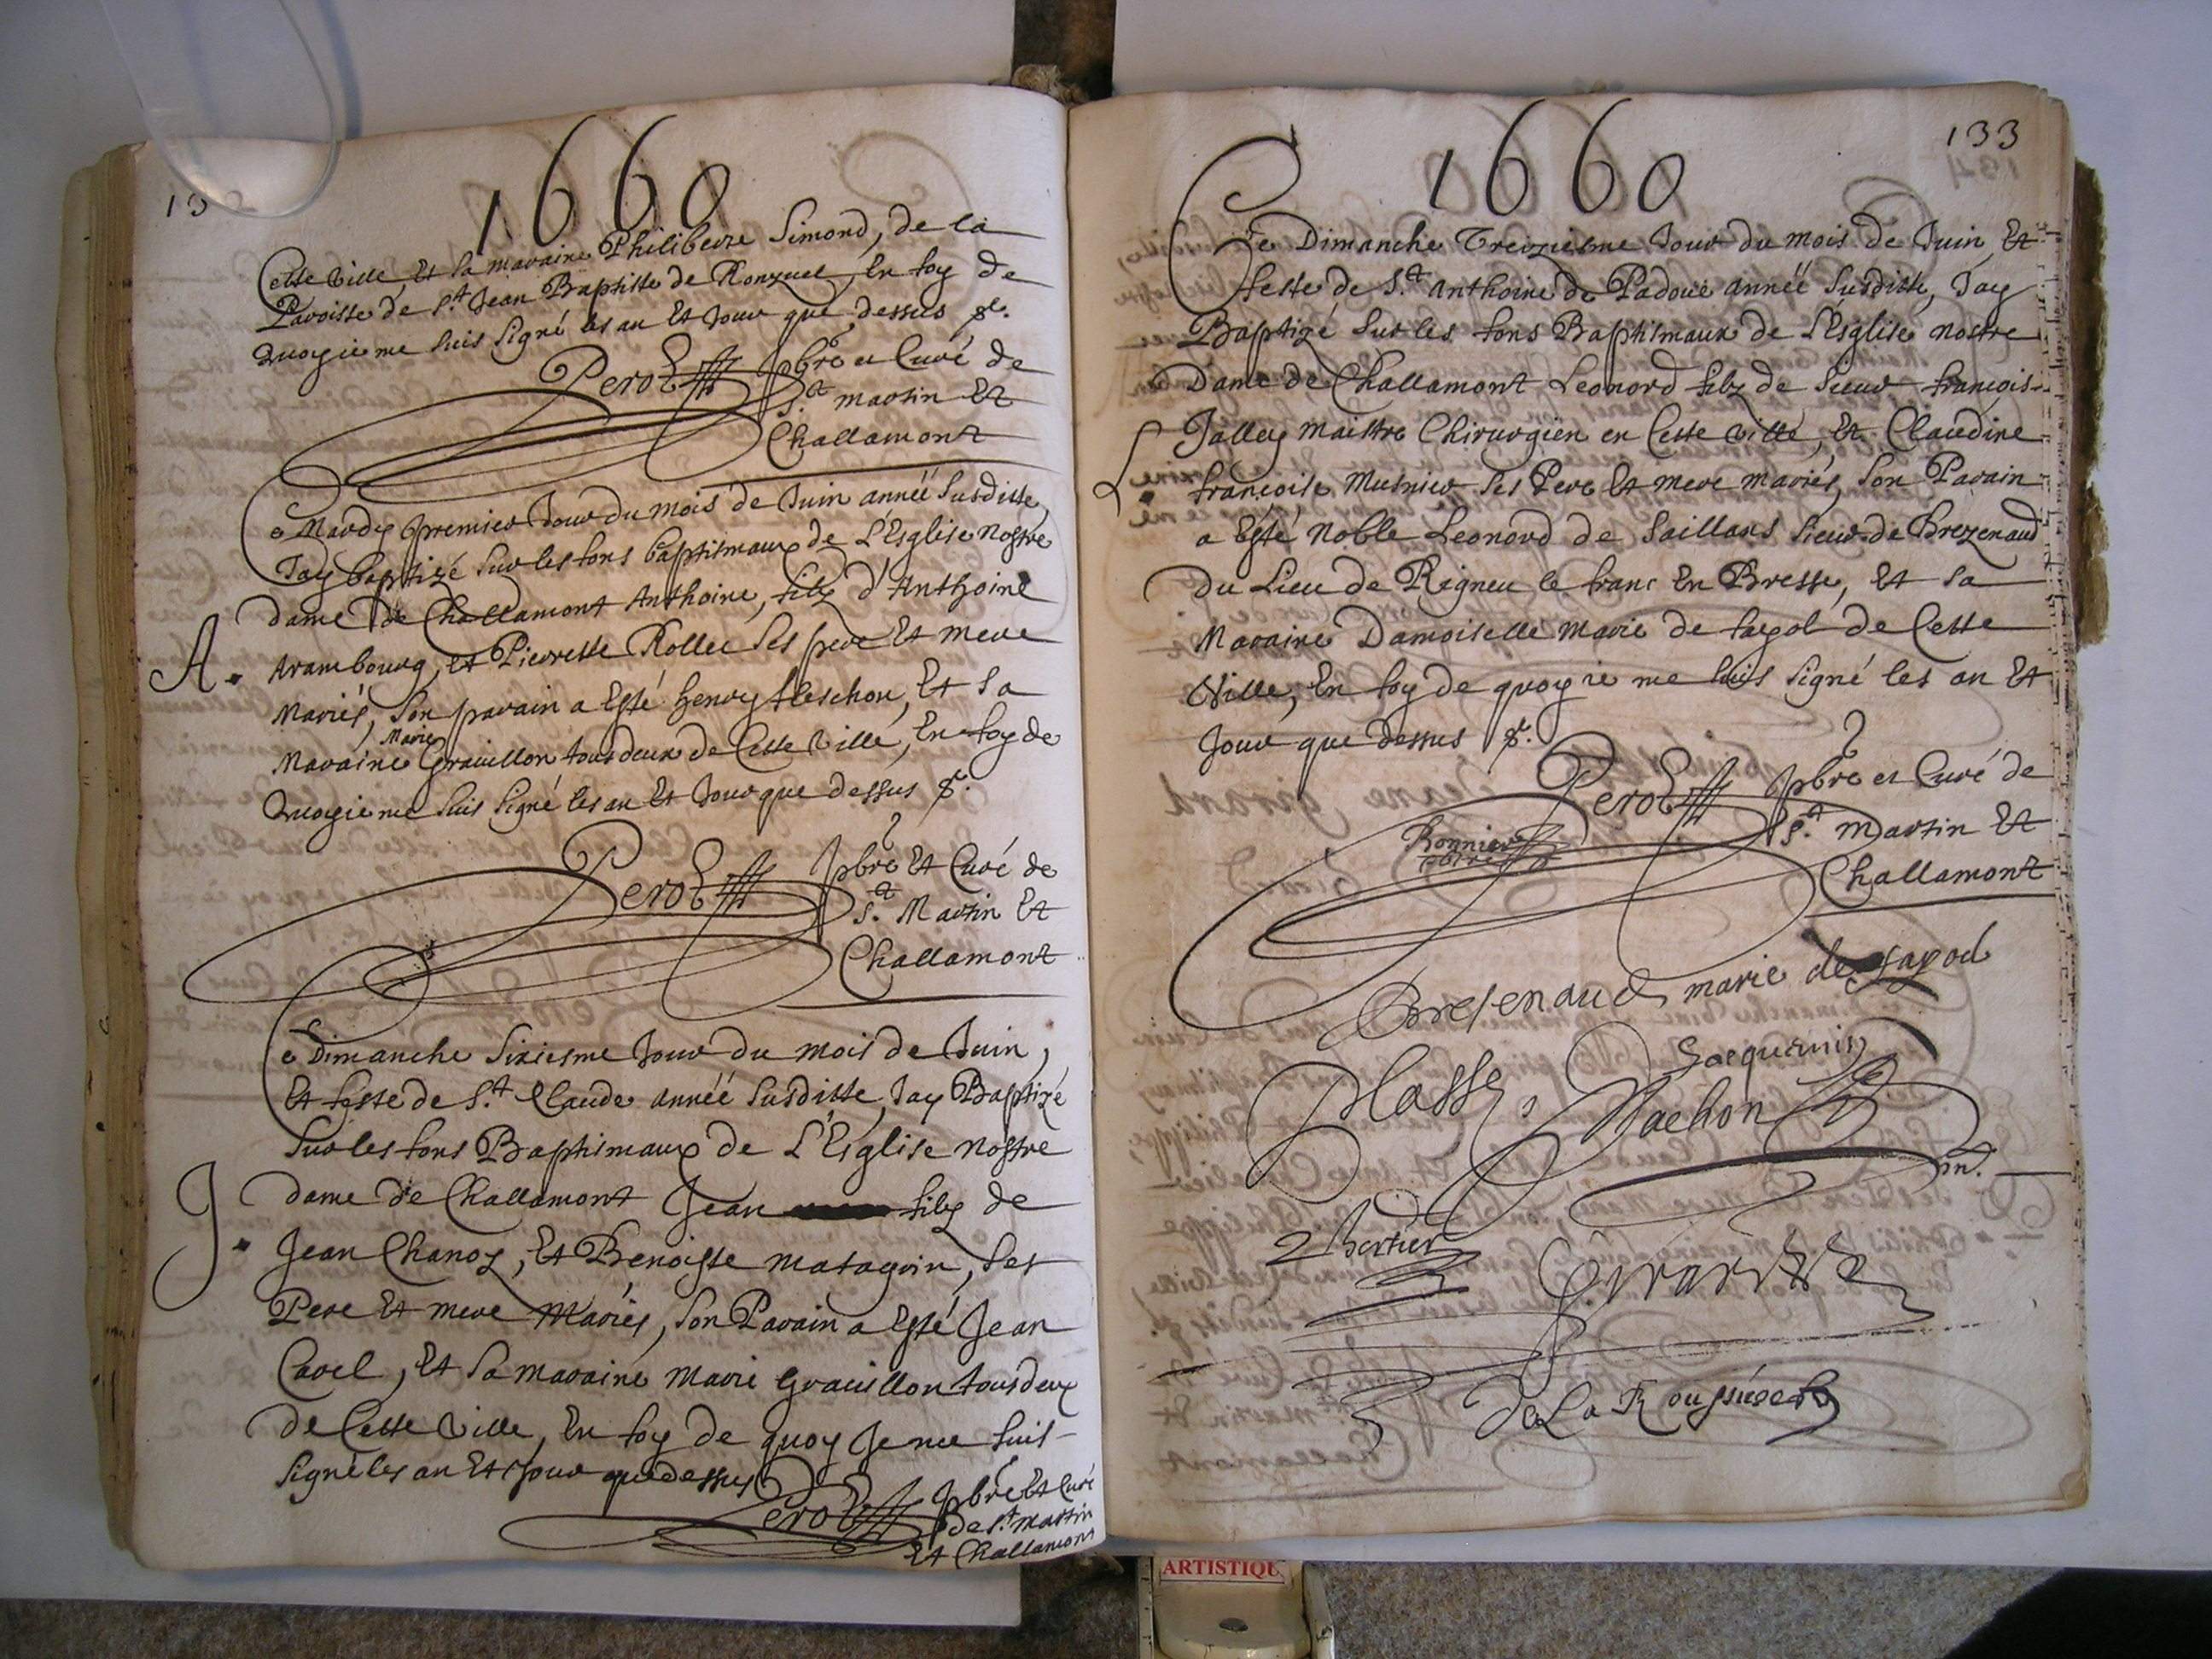 1660
Cette Ville, Et sa maraine Philiberte Simond, de la
Paroisse de S.t Jean Baptiste de Ronzuel, En foy de
Quoy ie me suis signé les an Et Jour que dessus &.
Perot pbre et Curé de
S.t martin Et
Challamont
Ce Mardy premier Jour du mois de Juin année susditte,
Jay baptizé sur les fons baptismaux de L'Esglise nostre
dame de Challamont Anthoine, filz d'Anthoine
A.
Arambourg, et Pierrette Rollet ses pere Et mere
Mariés, son parain a Esté henry fleschon, Et sa
Marie
Maraine Grauillon tous deux de Cette Ville, En foy de
Quoy ie me suis signé les an Et Jour que dessus &.
Perot pbre Et Curé de
S.t Martin Et
Challamont
Ce Dimanche Sixiesme Jour du mois de Juin,
Et feste de S.t Claude année susditte, Jay Baptizé
sur les fons Baptismaux de L'Esglise nostre
J.
dame de Challamont Jean filz de
Jean Chanoz, Et Benoiste matagrin, ses
Pere Et mere Mariés, son Parain a Esté Jean
Carel, Et sa maraine marie Grauillon tous deux
de Cette Ville, En foy de quoy Je me suis
signé les an Et Jour que dessus
Perot pbre Et Curé
de S.t martin
Et Challamont
133
1660
Ce Dimanche Treiziesme Jour du mois de Juin, Et
feste de S.t Anthoine de Padoue année susditte, Jay
Baptizé sur les fons Baptismaux de L'Esglise nostre
Dame de Challamont Leonord filz de sieur françois
Jalley maistre Chirurgien en Cette Ville, Et Claudine
L.
françoise Musnier ses Pere Et mere mariés, son Parain
a Esté noble Leonord de Saillans sieur de Brezenaud
du Lieu de Rigneu le franc En Bresse, Et sa
Maraine Damoiselle marie de fapol de Cette
Ville, En foy de quoy ie me suis signé les an Et
Jour que dessus &.
Perot pbre et Curé de
S.t Martin Et
Challamont
Bonnier
pbtre
Bresenaud marie de
Jacquemin
Machon
Bertier
Girard
ARTISTIQU